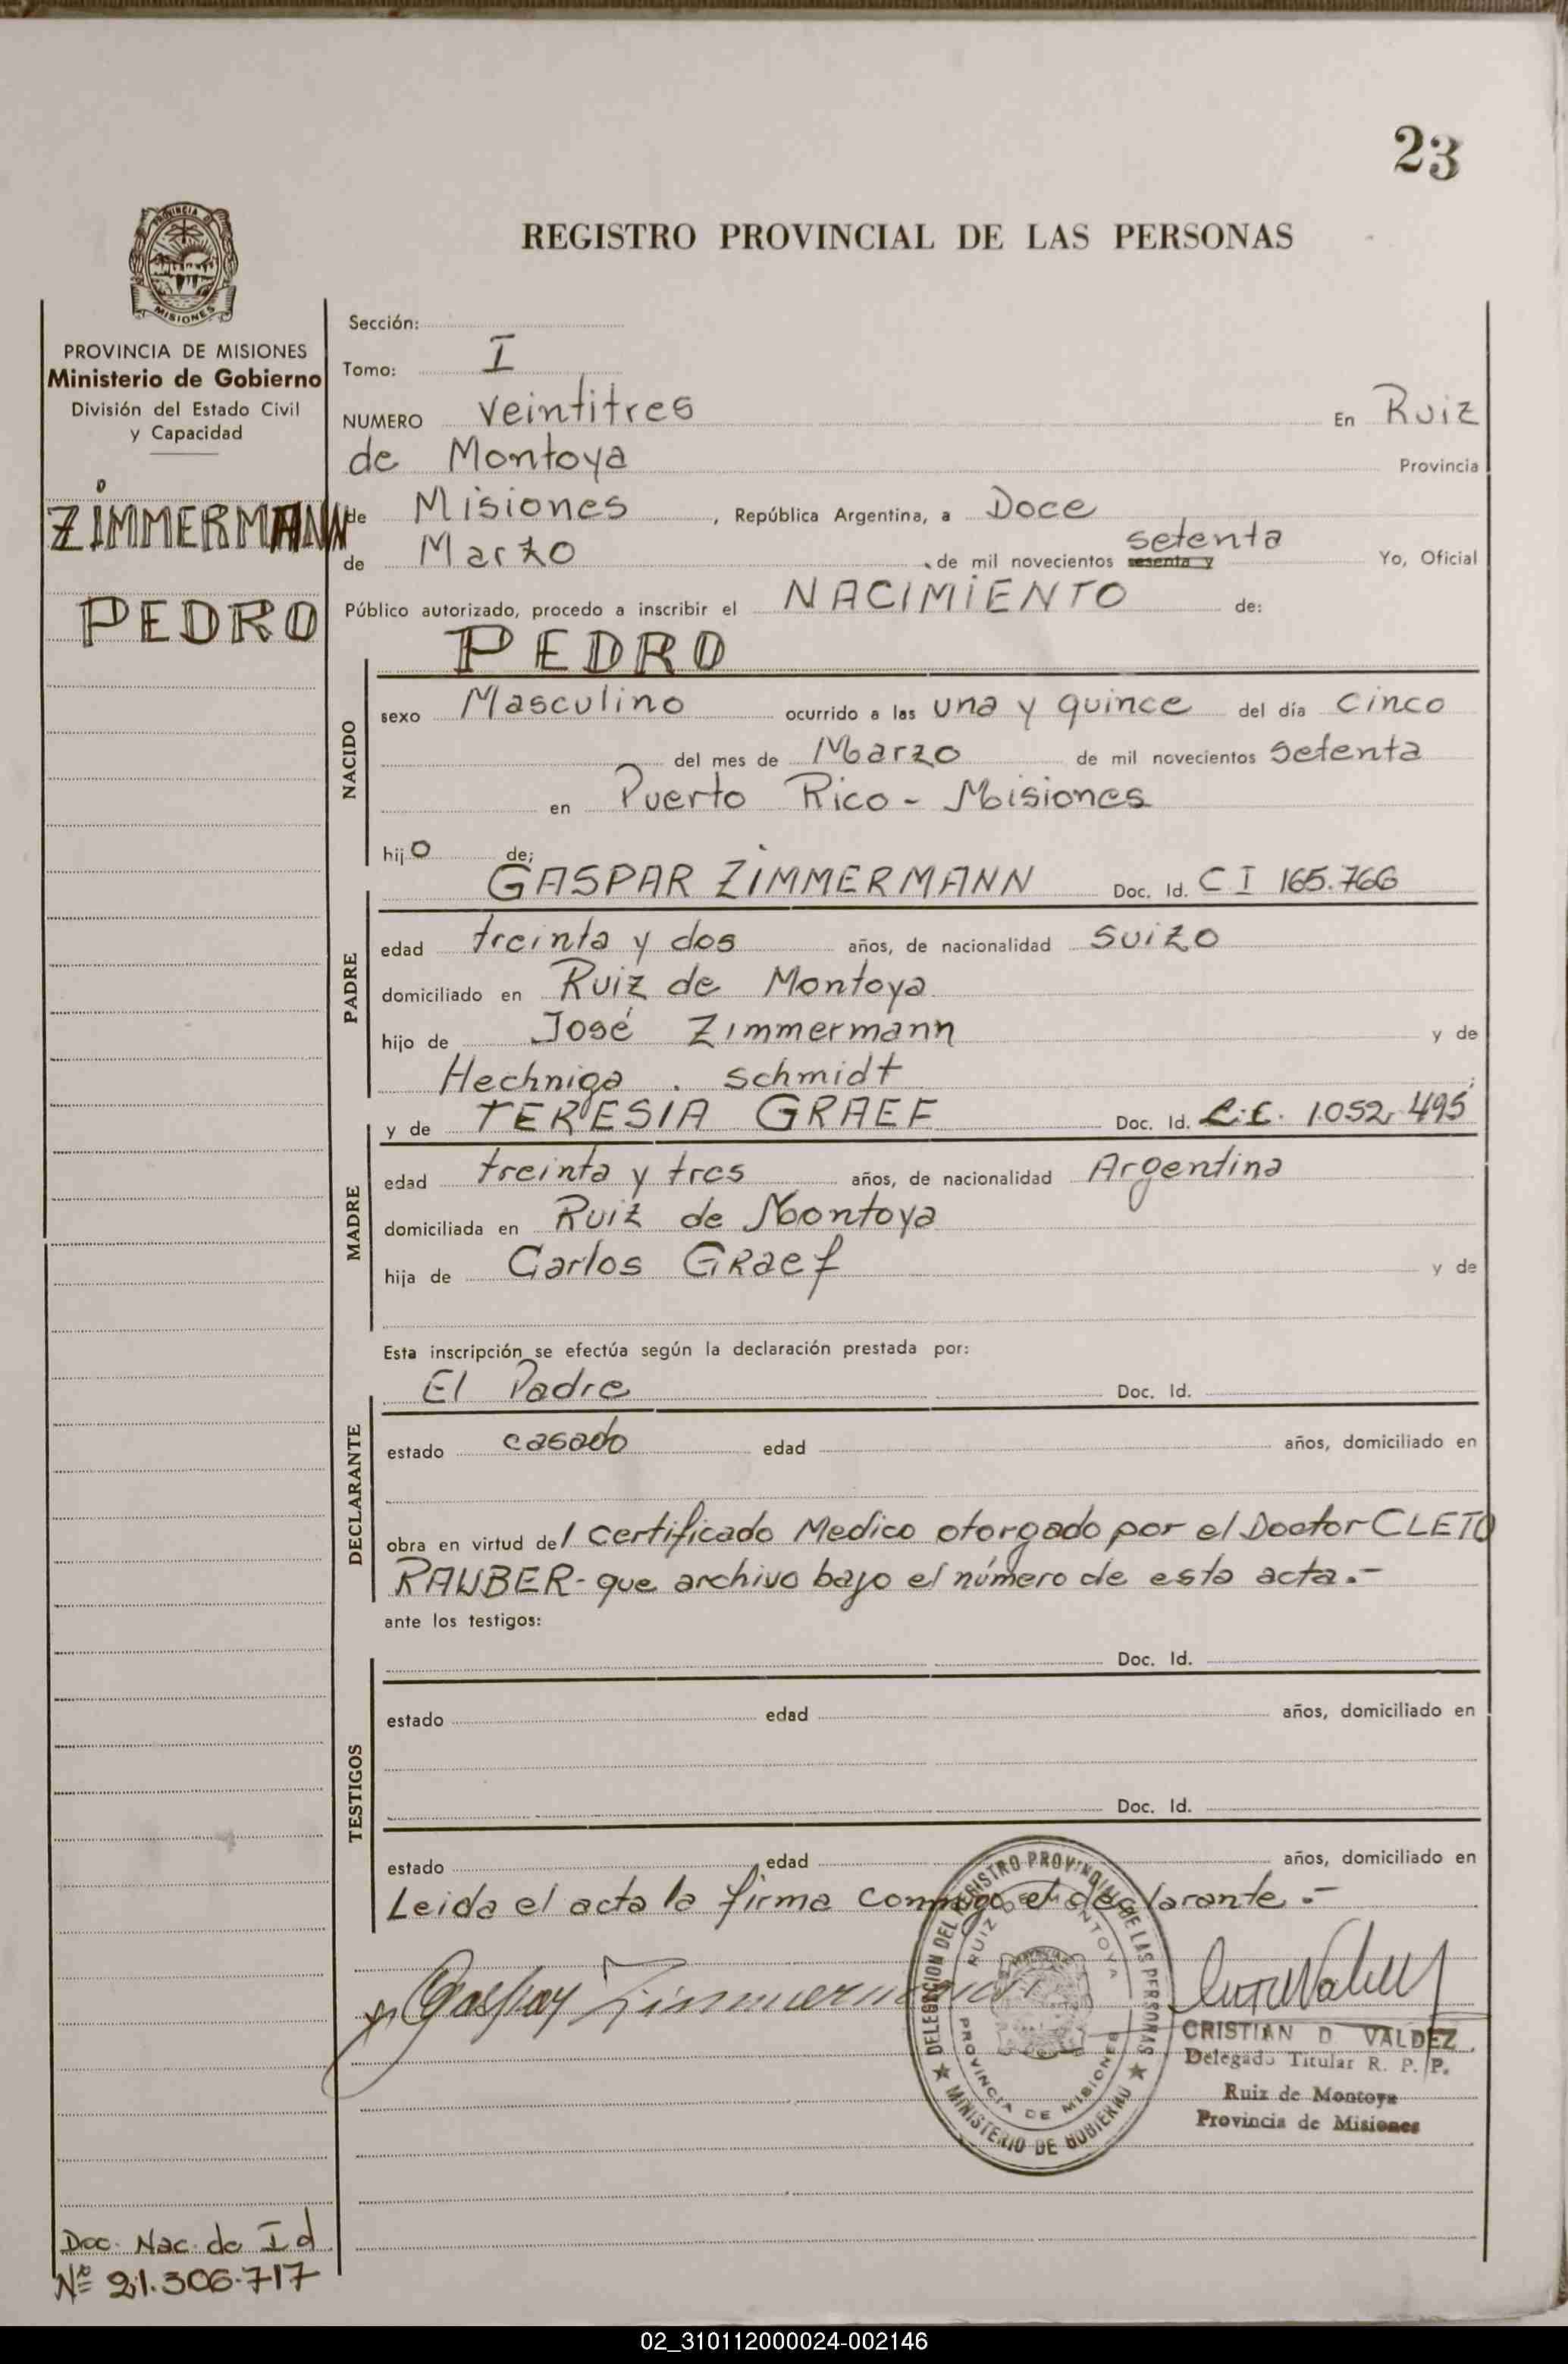 23
REGISTRO PROVINCIAL DE LAS PERSONAS
PROVINCIA DE
MISIONES
PROVINCIA DE MISIONES
Ministerio de Gobierno
División del Estado Civil
y Capacidad
ZIMMERMANN
PEDRO
Sección:
Tomo: I
NUMERO Veintitres En Ruiz
de Montoya Provincia
de Misiones, República Argentina, a Doce
de Marzo de mil novecientos sesenta y setenta Yo, Oficial
Público autorizado, procedo a inscribir el NACIMIENTO de:
PEDRO
NACIDO
sexo Masculino ocurrido a las una y quince del día cinco
del mes de Marzo de mil novecientos setenta
en Puerto Rico - Misiones
hijo de;
GASPAR ZIMMERMANN Doc. Id. C I 165.766
PADRE
edad treinta y dos años, de nacionalidad suizo
domiciliado en Ruiz de Montoya
hijo de José Zimmermann y de
Hechniga . schmidt
y de TERESIA GRAEF Doc. Id. L.C. 1.052.495
MADRE
edad treinta y tres años, de nacionalidad Argentina
domiciliada en Ruiz de Montoya
hija de Carlos Graef y de
Esta inscripción se efectúa según la declaración prestada por:
El Padre Doc. Id.
DECLARANTE
estado casado edad años, domiciliado en
obra en virtud del Certificado Medico otorgado por el Doctor CLETO
RAUBER- que archivo bajo el número de esta acta.-
ante los testigos:
Doc. Id.
TESTIGOS
estado edad años, domiciliado en
Doc. Id.
estado edad años, domiciliado en
Leida el acta la firma conmigo el declarante.-
Gaspar Zimmermann
DELEGACION DEL REGISTRO PROVINCIAL DE LAS PERSONAS
RUIZ DE MONTOYA
PROVINCIA DE MISIONES
MINISTERIO DE GOBIERNO
CRISTIAN D. VALDEZ
Delegado Titular R. P. P.
Ruiz de Montoya
Provincia de Misiones
Doc. Nac. de Id
Nº 21.306.717
02_310112000024-002146